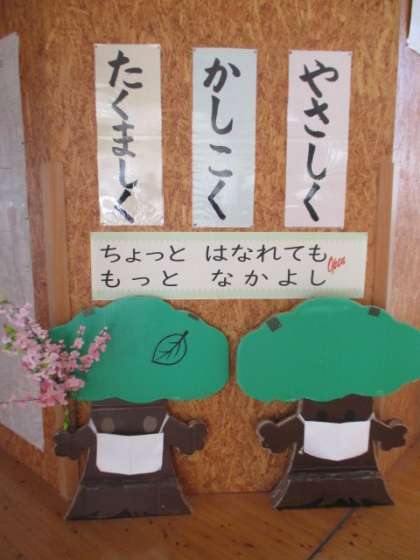 やさしく
かしこく
たくましく
ちょっと はなれても
もっと なかよし
Open